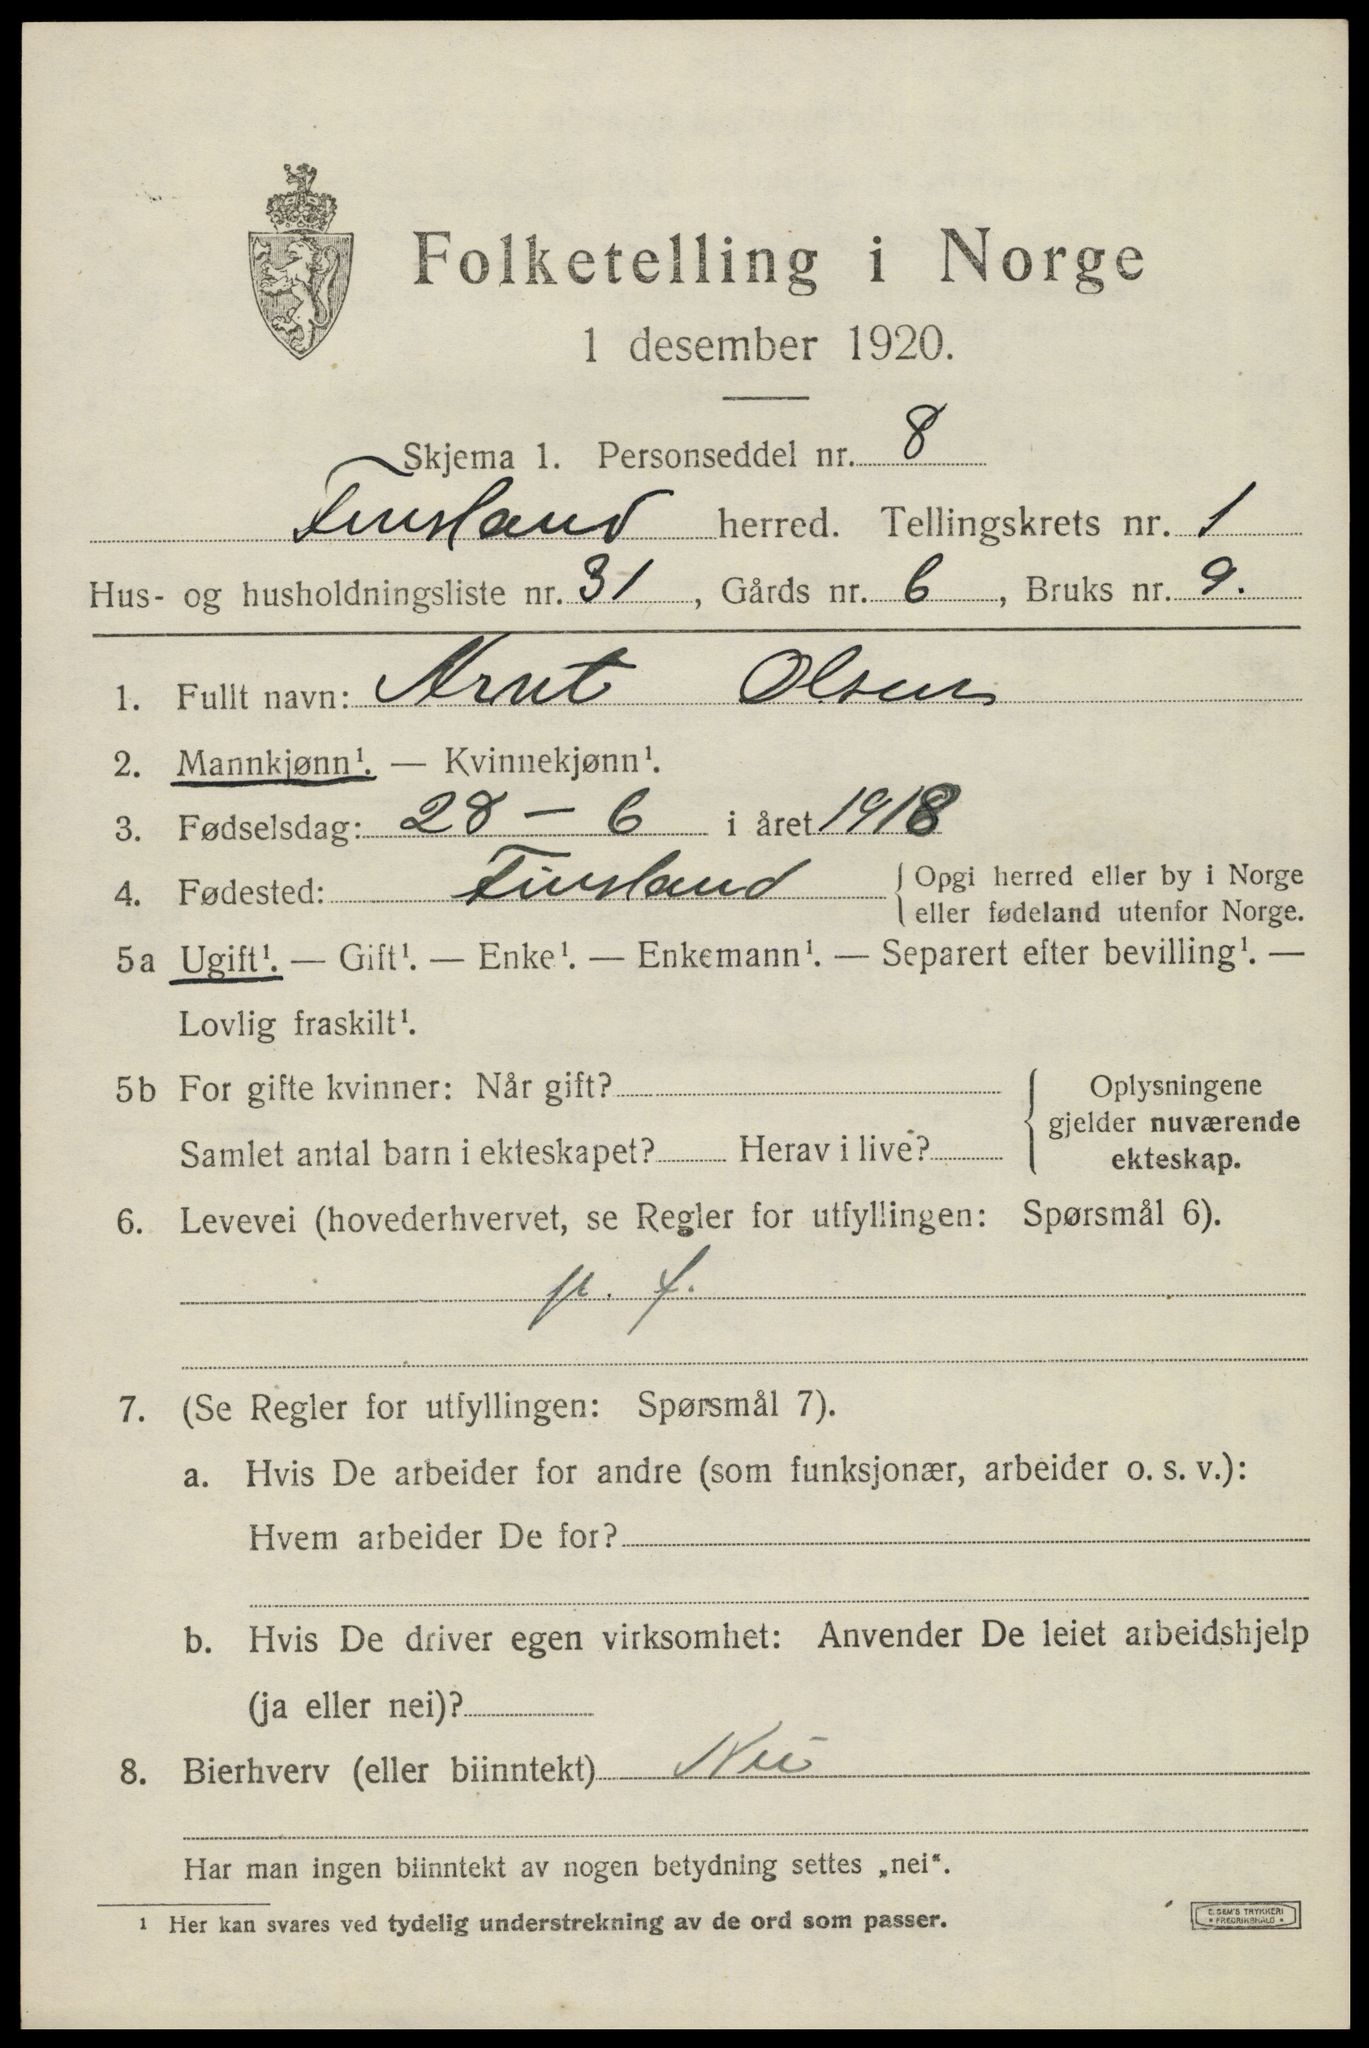 Folketelling i Norge
1 desember 1920.
Skjema 1. Personseddel nr. 8
Finsland herred. Tellingskrets nr. 1
Hus- og husholdningsliste nr. 31, Gårds nr. 6, Bruks nr. 9.
1. Fullt navn: Arnt Olsen
2. Mannkjønn¹. — Kvinnekjønn¹.
3. Fødselsdag: 28 – 6 i året 1918
4. Fødested: Finsland {Opgi herred eller by i Norge
eller fødeland utenfor Norge.
5a Ugift¹. — Gift¹. — Enke¹. — Enkemann¹. — Separert efter bevilling¹. —
Lovlig fraskilt¹.
5b For gifte kvinner: Når gift?
Samlet antal barn i ekteskapet? Herav i live?
{Oplysningene
gjelder nuværende
ekteskap.
6. Levevei (hovederhvervet, se Regler for utfyllingen: Spørsmål 6).
p. f.
7. (Se Regler for utfyllingen: Spørsmål 7).
a. Hvis De arbeider for andre (som funksjonær, arbeider o. s. v.):
Hvem arbeider De for?
b. Hvis De driver egen virksomhet: Anvender De leiet arbeidshjelp
(ja eller nei)?
8. Bierhverv (eller biinntekt) Nei
Har man ingen biinntekt av nogen betydning settes „nei“.
¹ Her kan svares ved tydelig understrekning av de ord som passer.
E. SEM'S TRYKKERI
• FREDRIKSHALD •